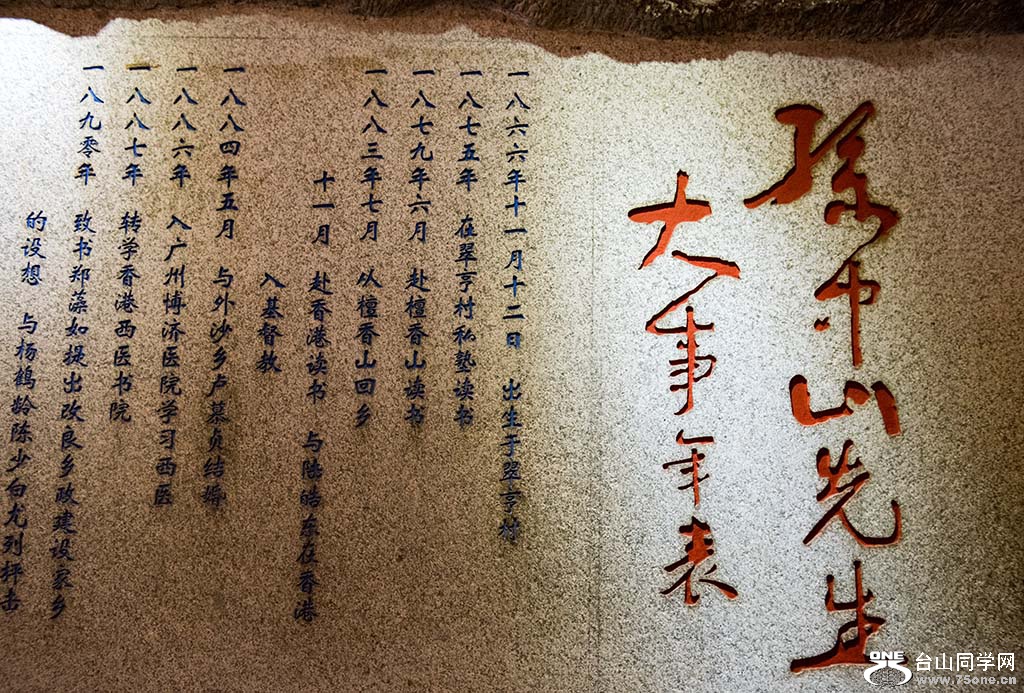 孫中山先生
大事年表
一八六六年十一月十二日 出生于翠亨村
一八七五年 在翠亨村私塾读书
一八七九年六月 赴檀香山读书
一八八三年七月 从檀香山回乡
十一月 赴香港读书 与陆皓东在香港
入基督教
一八八四年五月 与外沙乡卢慕贞结婚
一八八六年 入广州博济医院学习西医
一八八七年 转学香港西医书院
一八九零年 致书郑藻如提出改良乡政建设家乡
的设想 与杨鹤龄陈少白尤列抨击
ONE 台山同学网
www.75one.cn